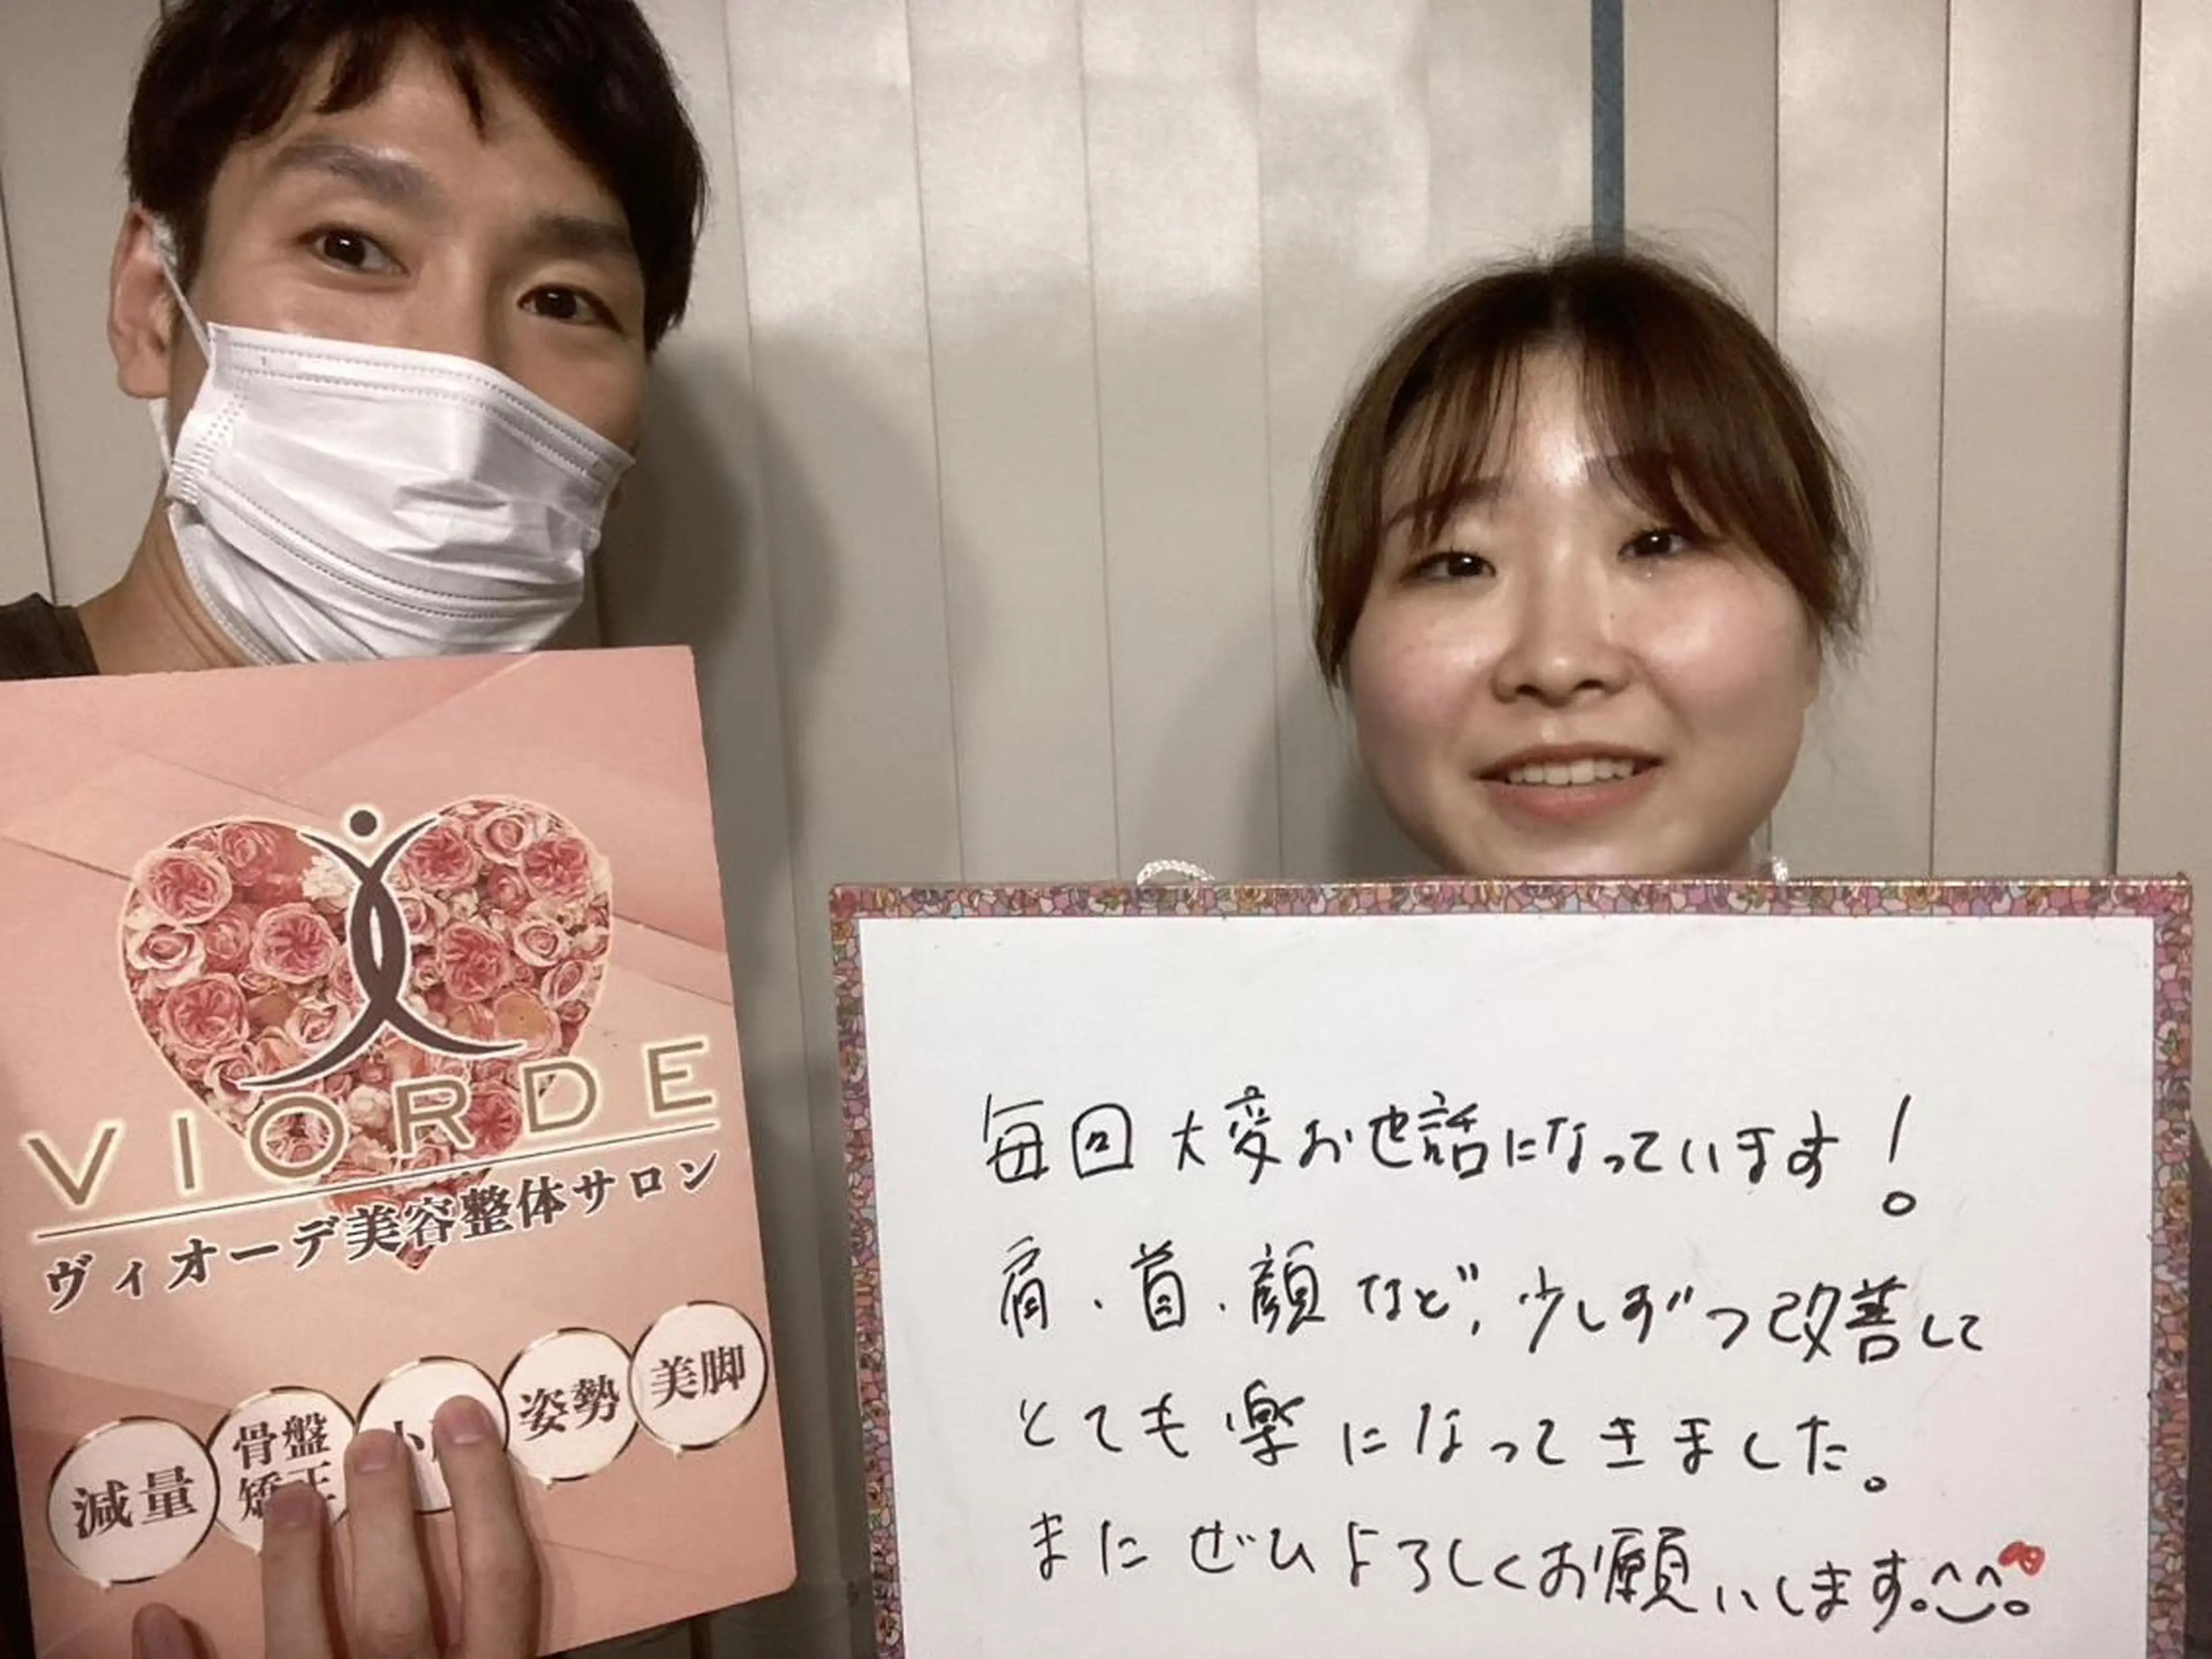 VIORDE
ヴィオーデ美容整体サロン
減量
骨盤
矯正
小
姿勢
美脚
毎回大変お世話になっています!
肩・首・顔など、少しずつ改善して
とても楽になってきました。
またぜひよろしくお願いします。^^